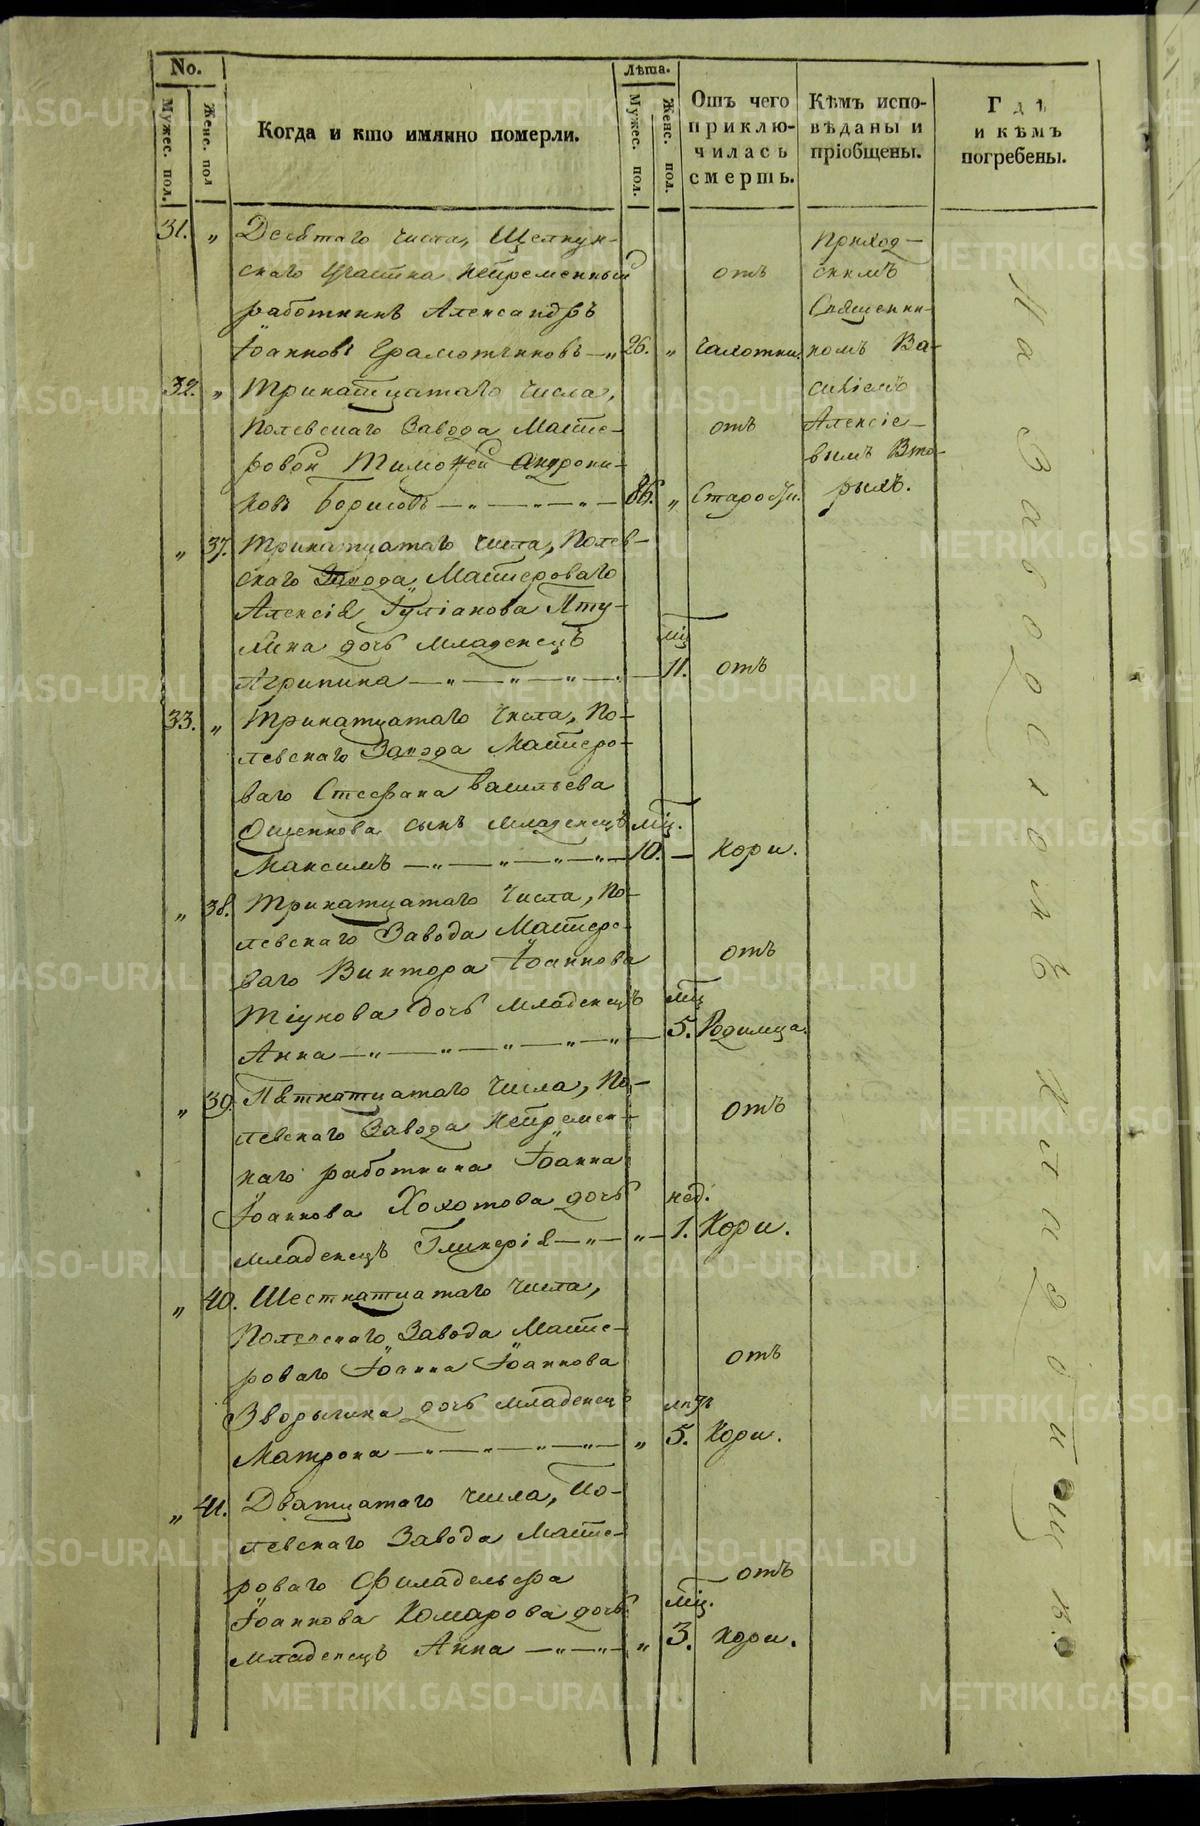 No.
Мужес. пол.
Женс. пол
Когда и кто имянно померли.
Лѣта.
Мужес. пол.
Женс. пол.
Отъ чего приклю-
чилась
смерть.
Кѣмъ испо-
вѣданы и
пріобщены.
Гдѣ
и кѣмъ
погребены.
31. „ Десятаго числа, Щелкун-
скаго участка непременный
работникъ Александръ
Іоанновъ Грамотчиковъ — „ 26. „
отъ
чахотки.
Приход-
скимъ
Священни-
комъ Ва-
силіемъ
Алексіе-
вымъ Вто-
рымъ.
32. „ Тринатцатаго числа,
Полевскаго Завода Масте-
ровой Тимофей Андрони-
ковъ Борисовъ — „ — „ — „ — 86. „
отъ
Старости.
„ 37. Тринатцатаго числа, Полев-
скаго Завода, Мастероваго
Алексія Іуліанова Пту-
хина дочь младенецъ
Агрипина — „ — „ — „ — „ — мц 11.
отъ
33. „ Тринатцатаго числа, По-
левскаго Завода Мастеро-
ваго Стефана Васильева
Ощепкова сынъ младенецъ
Максимъ — „ — „ — „ — „ — мц. 10. —
Кори.
„ 38. Тринатцатаго числа, По-
левскаго Завода Мастеро-
ваго Виктора Іоаннова
Тіунова дочь младенецъ
Анна — „ — „ — „ — „ — „ — мц 5.
отъ
Родимца.
„ 39. Пятнатцатаго числа, По-
левскаго Завода Непремен-
наго работника Іоанна
Іоаннова Хохотова дочь
младенецъ Гликерія — „ — „ — нед. 1.
отъ
Кори.
„ 40. Шестнатцатаго числа,
Полевскаго Завода Масте-
роваго Іоанна Іоаннова
Зворыгина дочь младенецъ
Матрона — „ — „ — „ — „ — „ 5.
отъ
Кори.
„ 41. Дватцатаго числа, По-
левскаго Завода Масте-
роваго Филадельфа
Іоаннова Комарова дочь
младенецъ Анна — „ — „ — „ мц. 3.
отъ
Кори.
На Заводскомъ Кладбищѣ.
METRIKI.GASO-URAL.RU